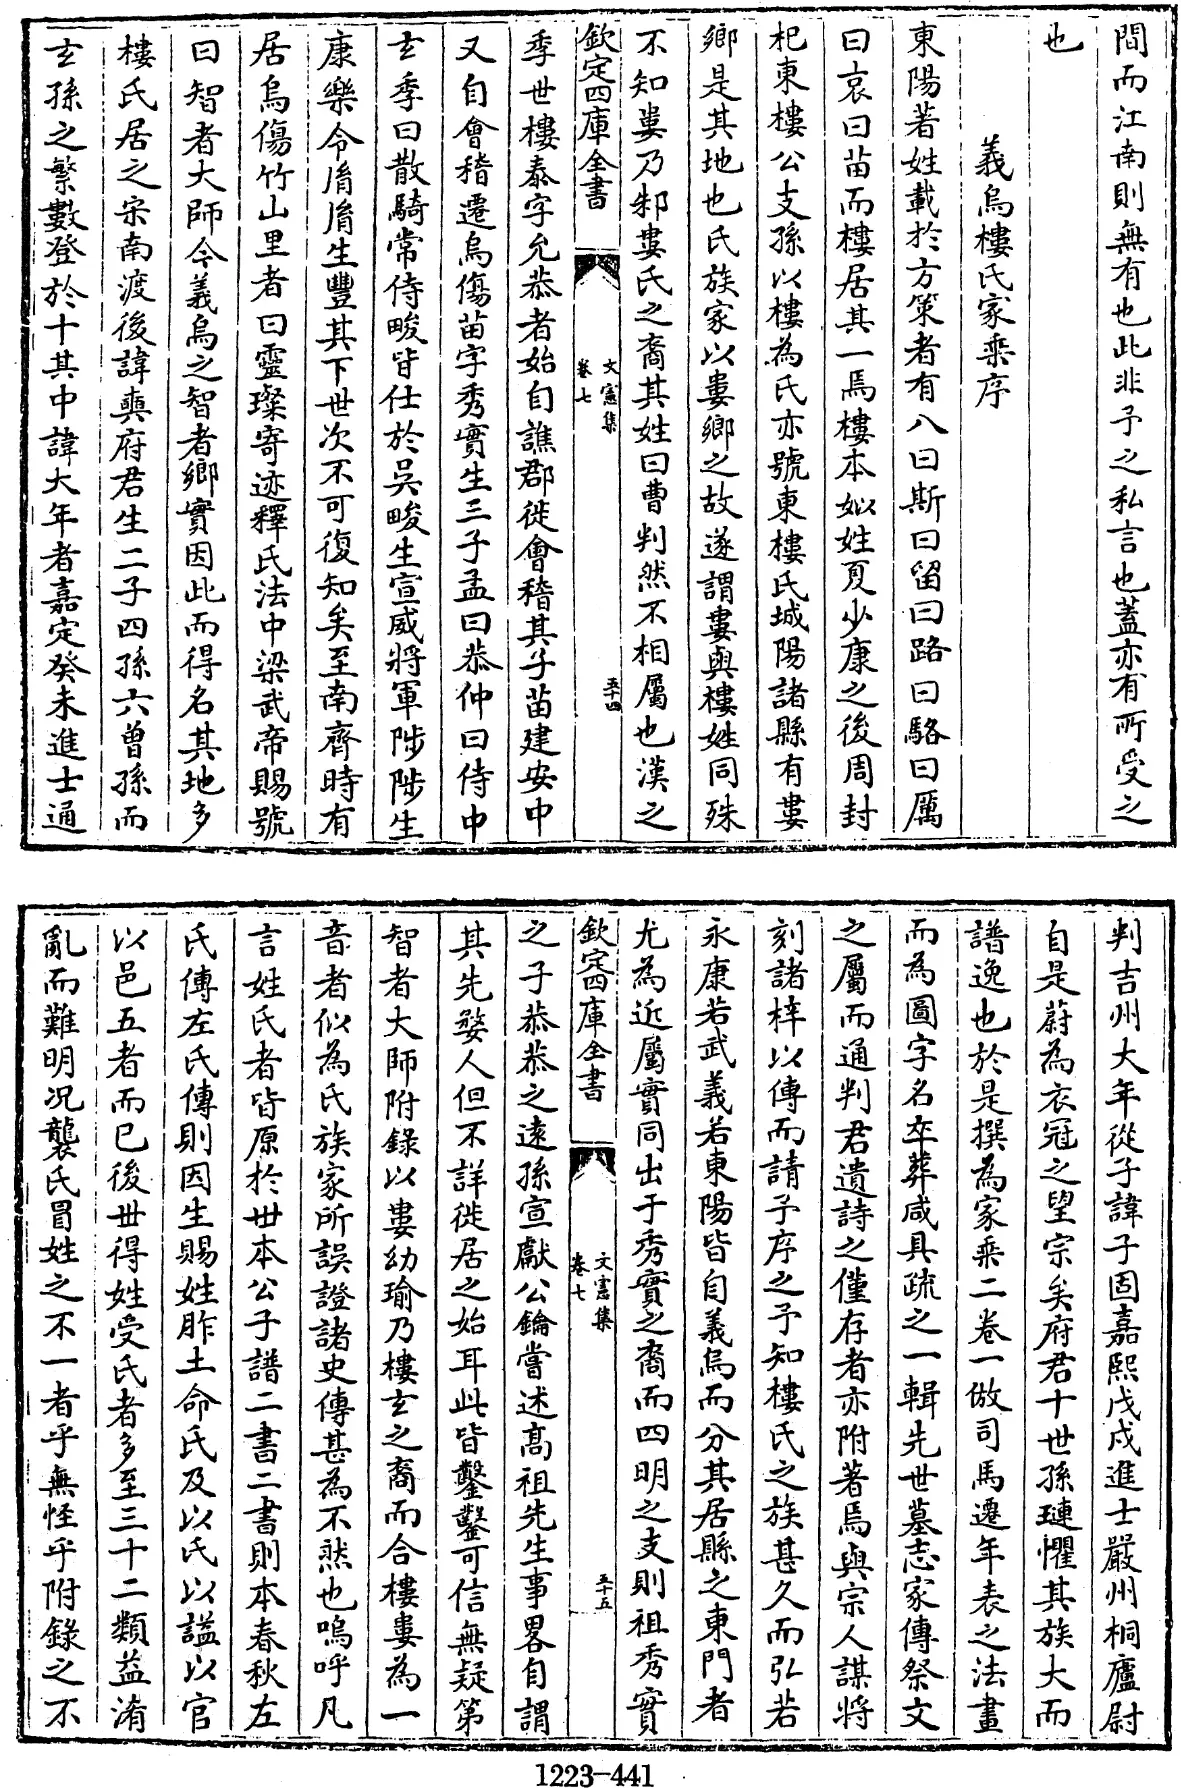 間而江南則無有也此非予之私言也蓋亦有所受之
也
義烏樓氏家乘序
東陽著姓載於方策者有八曰斯曰留曰路曰駱曰厲
曰哀曰苗而樓居其一焉樓本姒姓夏少康之後周封
杞東樓公支孫以樓為氏亦號東樓氏城陽諸縣有婁
鄉是其地也氏族家以婁鄉之故遂謂婁與樓姓同殊
不知婁乃邾婁氏之裔其姓曰曹判然不相屬也漢之
欽定四庫全書
文憲集
卷七
五十四
季世樓泰字允恭者始自譙郡徙會稽其子苗建安中
又自會稽遷烏傷苗字秀實生三子孟曰恭仲曰侍中
玄季曰散騎常侍畯皆仕於吳畯生宣威將軍陟陟生
康樂令脩脩生豐其下世次不可復知矣至南齊時有
居烏傷竹山里者曰靈璨寄迹釋氏法中梁武帝賜號
曰智者大師今義烏之智者鄉實因此而得名其地多
樓氏居之宋南渡後諱㒹府君生二子四孫六曾孫而
玄孫之繁數登於十其中諱大年者嘉定癸未進士通
判吉州大年從子諱子固嘉熙戊戌進士嚴州桐廬尉
自是蔚為衣冠之望宗矣府君十世孫璉懼其族大而
譜逸也於是撰為家乘二卷一倣司馬遷年表之法畫
而為圖字名卒葬咸具疏之一輯先世墓志家傳祭文
之屬而通判君遺詩之僅存者亦附著焉與宗人謀將
刻諸梓以傳而請予序之予知樓氏之族甚久而弘若
永康若武義若東陽皆自義烏而分其居縣之東門者
尤為近屬實同出于秀實之裔而四明之支則祖秀實
欽定四庫全書
文憲集
卷七
五十五
之子恭恭之遠孫宣獻公鑰嘗述高祖先生事畧自謂
其先婺人但不詳徙居之始耳此皆鑿鑿可信無疑第
智者大師附錄以婁幼瑜乃樓玄之裔而合樓婁為一
音者似為氏族家所誤證諸史傳甚為不然也嗚呼凡
言姓氏者皆原於世本公子譜二書二書則本春秋左
氏傳左氏傳則因生賜姓胙土命氏及以氏以謚以官
以邑五者而已後世得姓受氏者多至三十二類益淆
亂而難明况襲氏冒姓之不一者乎無怪乎附錄之不
1223-441